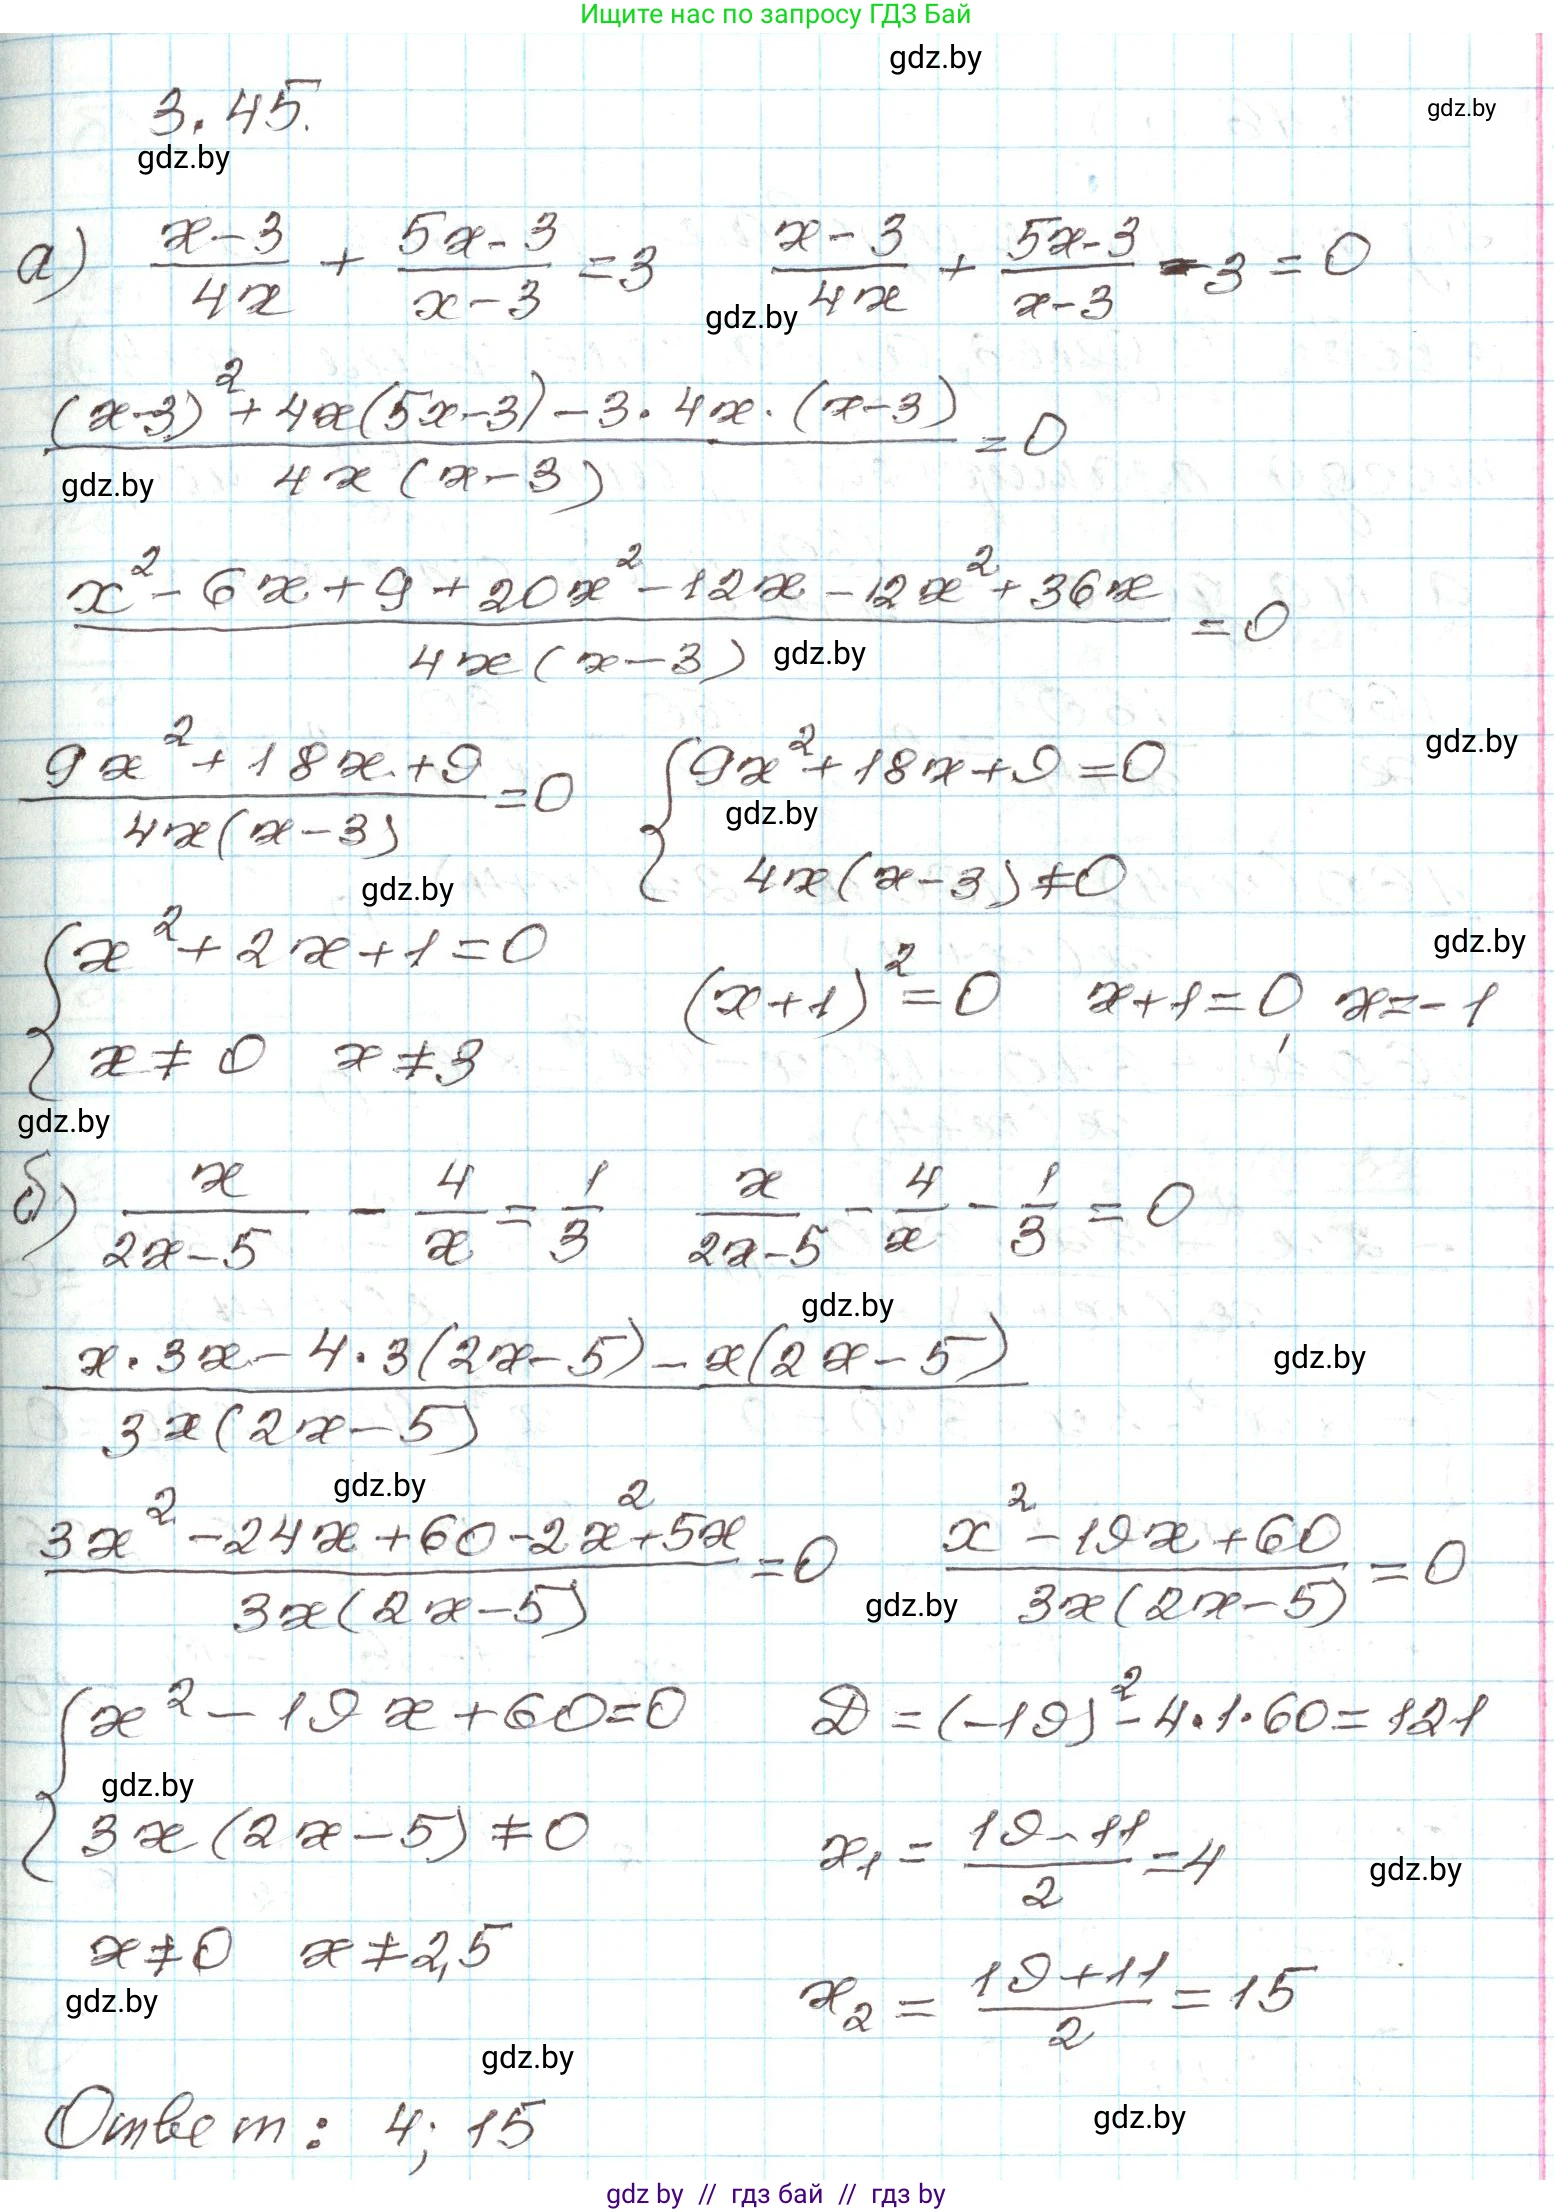 Ищите нас по запросу ГДЗ Бай
gdz.by
3.45.
gdz.by
gdz.by
а) (x-3)/(4x) + (5x-3)/(x-3) = 3   (x-3)/(4x) + (5x-3)/(x-3) - 3 = 0
gdz.by
((x-3)² + 4x(5x-3) - 3·4x·(x-3))/(4x(x-3)) = 0
gdz.by
(x² - 6x + 9 + 20x² - 12x - 12x² + 36x)/(4x(x-3)) = 0
gdz.by
(9x² + 18x + 9)/(4x(x-3)) = 0   { 9x² + 18x + 9 = 0
gdz.by
gdz.by
4x(x-3) ≠ 0
gdz.by
{ x² + 2x + 1 = 0   (x+1)² = 0   x+1 = 0, x = -1
gdz.by
x ≠ 0   x ≠ 3
gdz.by
б) x/(2x-5) - 4/x = 1/3   x/(2x-5) - 4/x - 1/3 = 0
gdz.by
(x·3x - 4·3(2x-5) - x(2x-5))/(3x(2x-5))
gdz.by
gdz.by
(3x² - 24x + 60 - 2x² + 5x)/(3x(2x-5)) = 0   (x² - 19x + 60)/(3x(2x-5)) = 0
gdz.by
{ x² - 19x + 60 = 0   D = (-19)² - 4·1·60 = 121
gdz.by
3x(2x-5) ≠ 0   x₁ = (19-11)/2 = 4
gdz.by
x ≠ 0   x ≠ 2,5   x₂ = (19+11)/2 = 15
gdz.by
gdz.by
Ответ: 4; 15
gdz.by
gdz by // гдз бай // гдз by